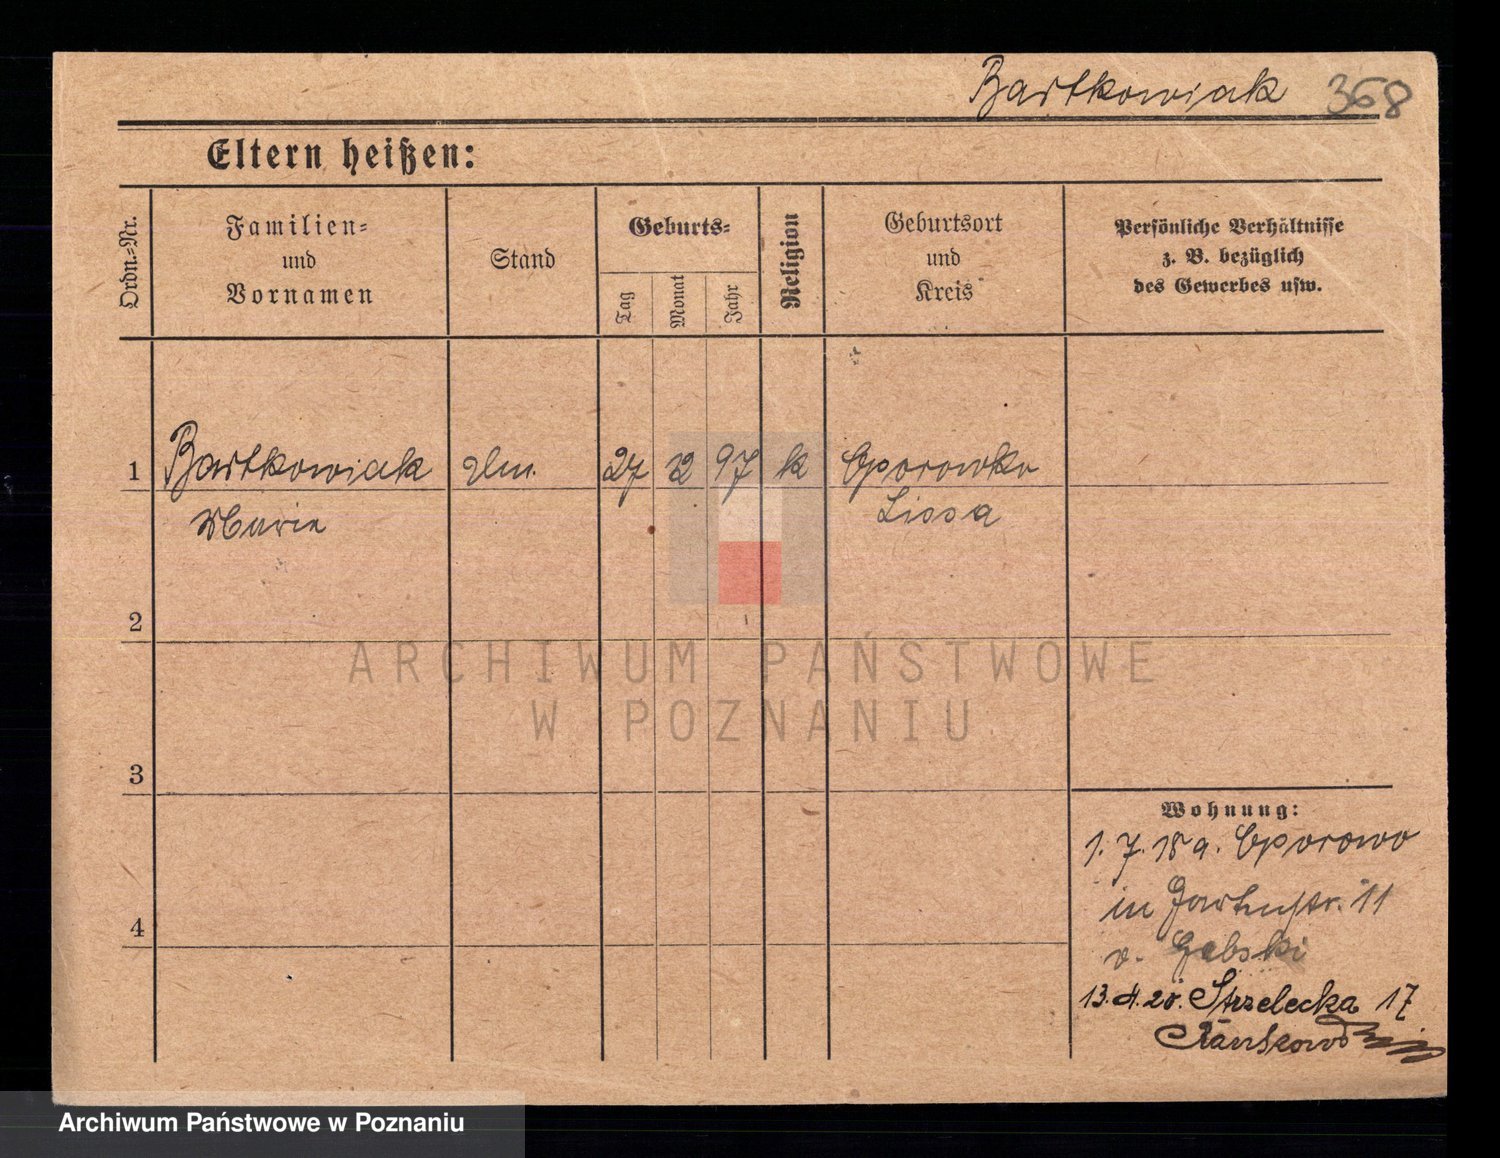 Bartkowiak 368
Eltern heißen:
Ordn.-Nr.
Familien-
und
Vornamen
Stand
Geburts-
Tag
Monat
Jahr
Religion
Geburtsort
und
Kreis
Persönliche Verhältnisse
z. B. bezüglich
des Gewerbes usw.
1 Bartkowiak 27 12 97 k Oporowko
Marie Lissa
2
3
4
Wohnung:
1. 7. 18 a. Oporowo
in 11
v. Gabski
13. 4. 20. Strzelecka 17
ARCHIWUM PAŃSTWOWE
W POZNANIU
Archiwum Państwowe w Poznaniu